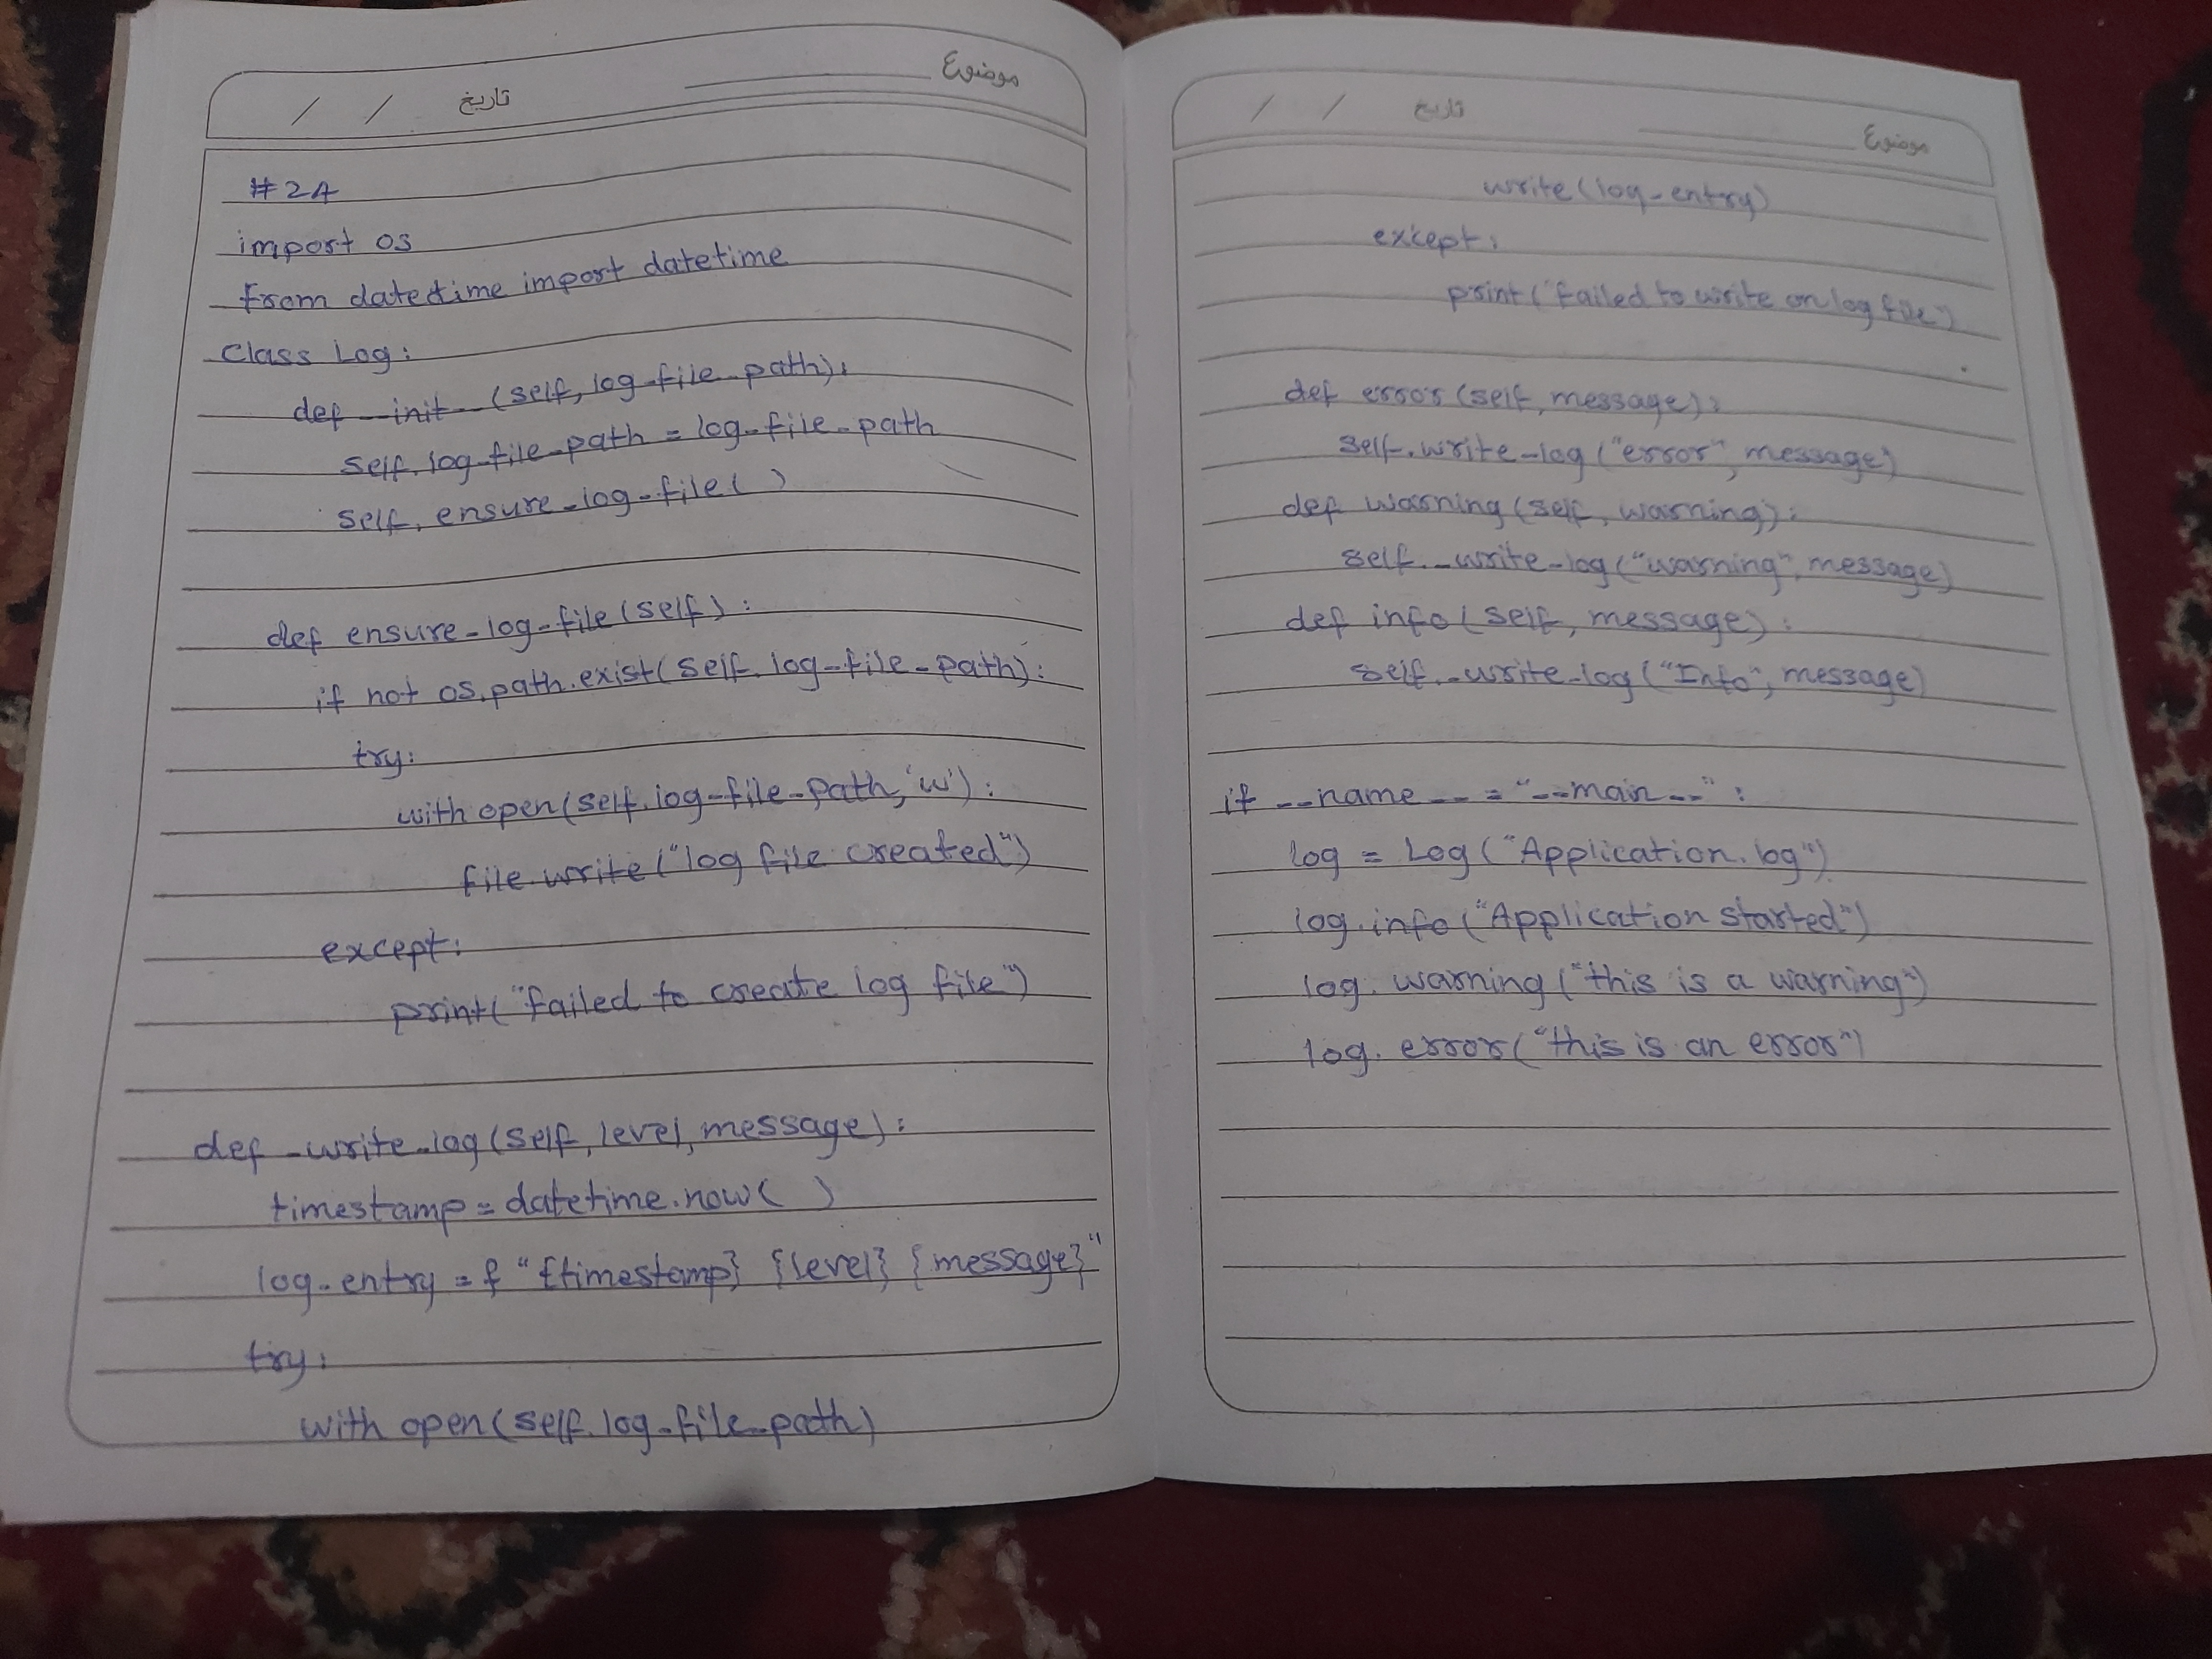 / / تاریخ
موضوع
#2A
import os
from datedime import datetime
class Log:
def __init__(self, log_file_path):
self.log_file_path = log_file_path
self.ensure_log_file()
def ensure_log_file(self):
if not os.path.exist(self.log_file_path):
try:
with open(self.log_file_path, 'w'):
file.write("log file created")
except:
print("failed to create log file")
def _write_log(self, level, message):
timestamp = datetime.now( )
log.entry = f "{timestamp} {level} {message}"
try:
with open(self.log_file_path)
/ / تاریخ
موضوع
write(log_entry)
except:
print("failed to write on log file")
def error(self, message):
self.write_log("error", message)
def warning(self, warning):
self._write_log("warning", message)
def info(self, message):
self._write_log("Info", message)
if __name__ = "__main__":
log = Log("Application.log")
log.info("Application started")
log.warning("this is a warning")
log.error("this is an error")